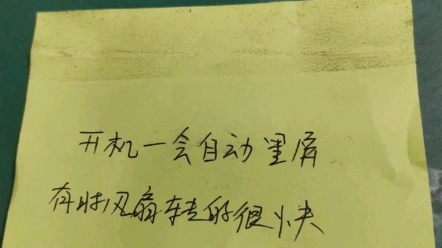 开机一会自动黑屏
有时风扇转的很快